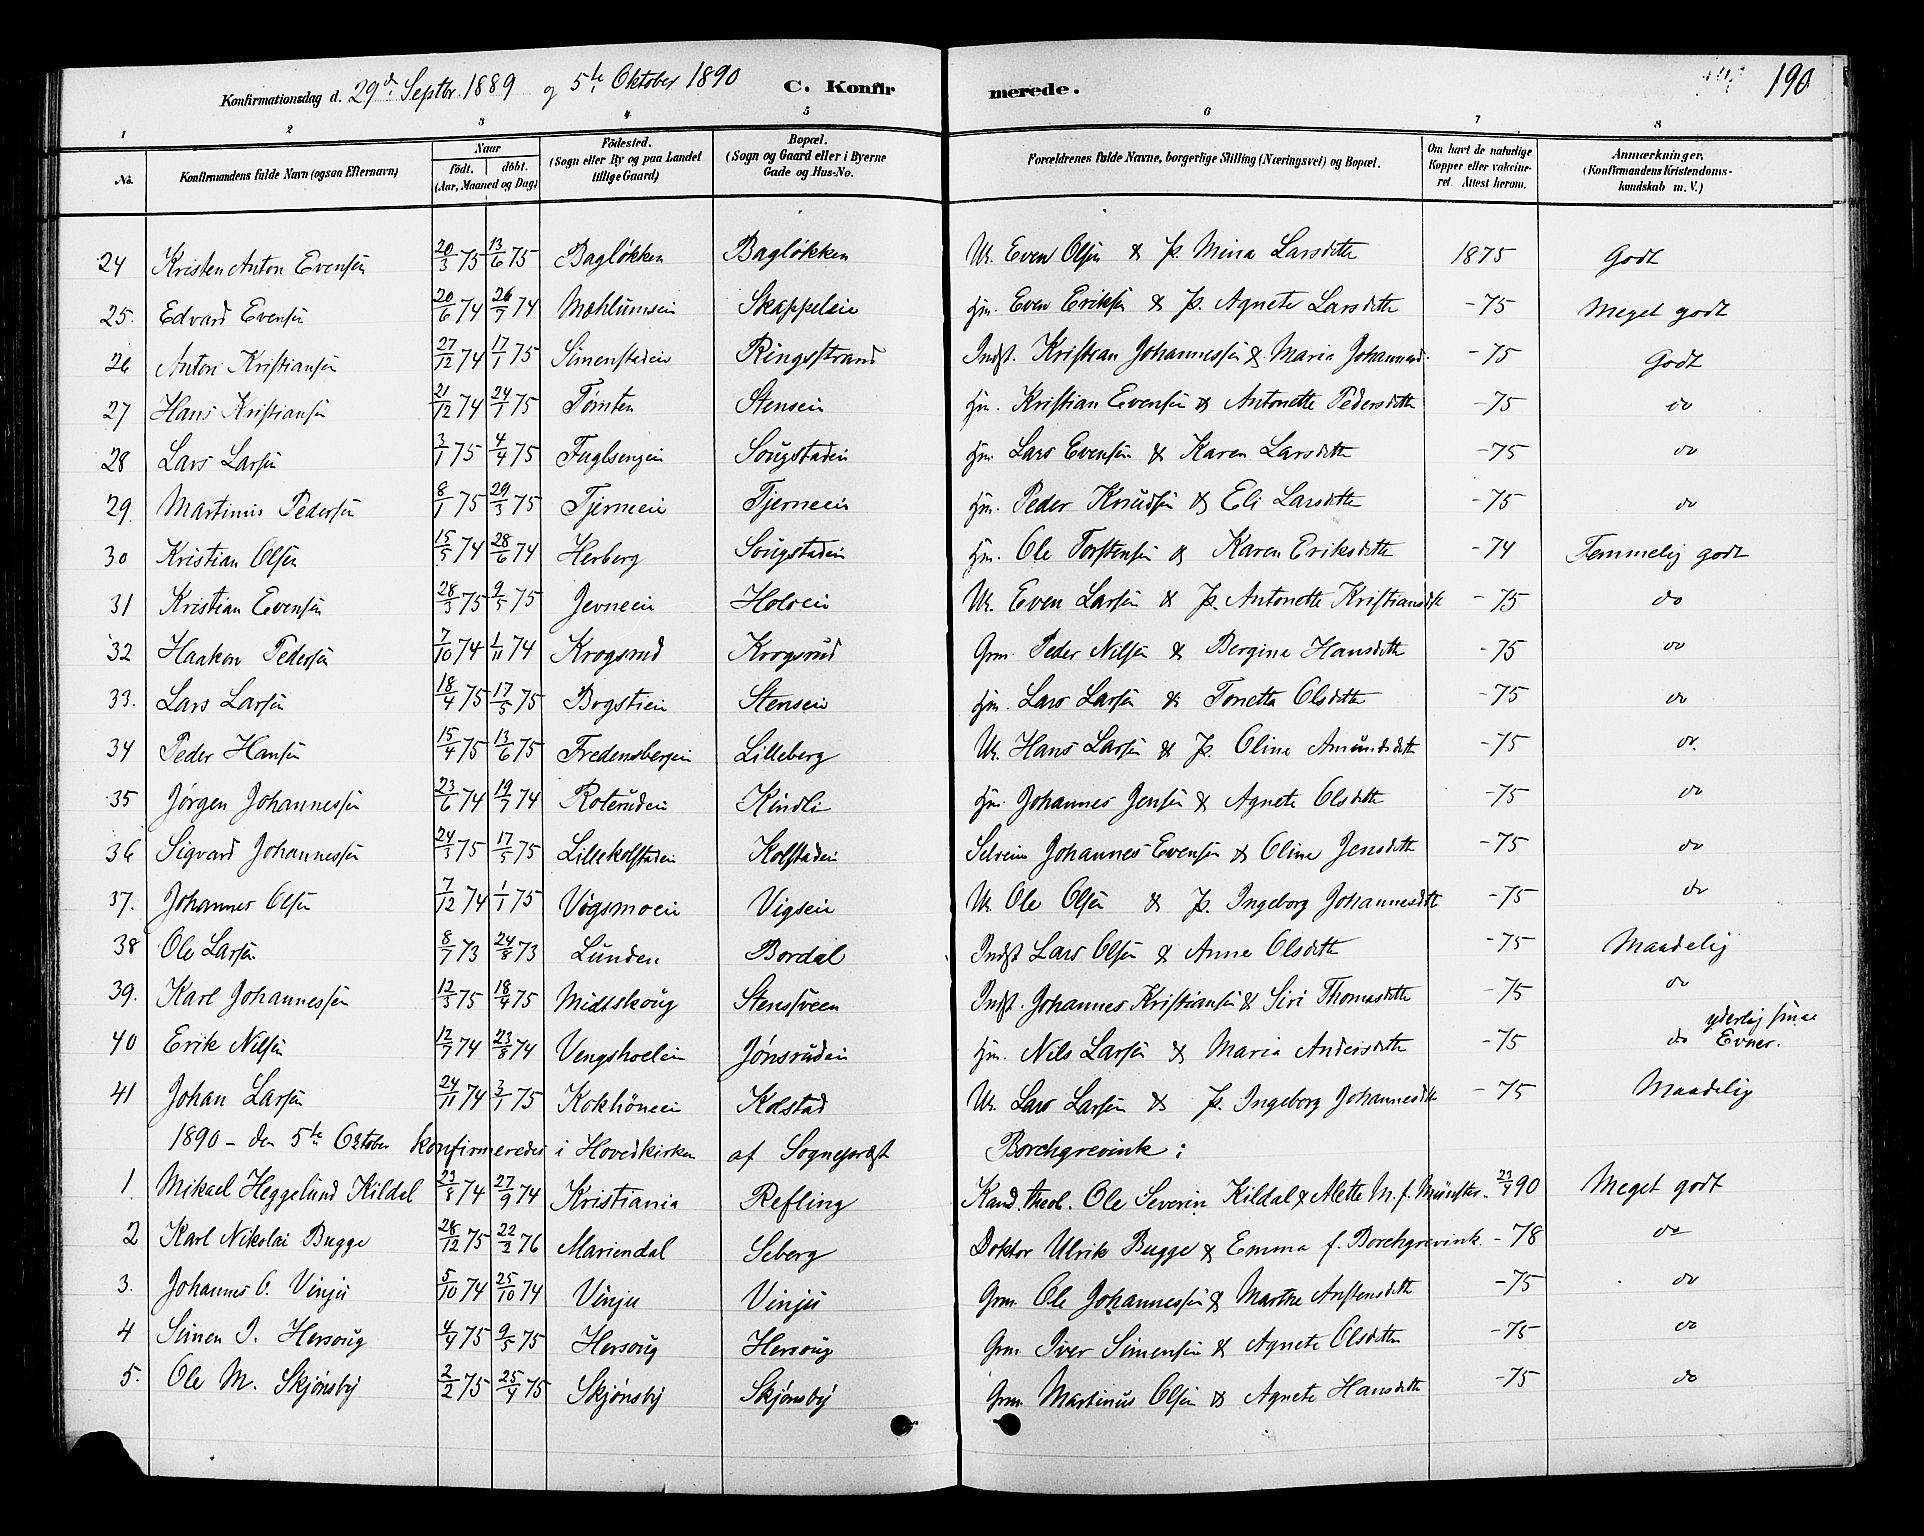 Konfirmationsdag d. 29de Septbr. 1889 og 5te Oktober 1890 C. Konfirmerede. 190
1 2 3 4 5 6 7 8
No. Konfirmandens fulde Navn (ogsaa Efternavn) Naar født. døbt. (Aar, Maaned og Dag) Fødested. (Sogn eller By og paa Landet tillige Gaard) Bopæl. (Sogn og Gaard eller i Byerne Gade og Hus-No. Forældrenes fulde Navne, borgerlige Stilling (Næringsvei) og Bopæl. Om havt de naturlige Kopper eller vakcineret. Attest herom. Anmærkninger. (Konfirmandens Kristendomskundskab m. V.)
24 Kristen Anton Evensen 20/3 75 13/6 75 Bagløkken Bagløkken Uk. Even Olsen & P. Mina Larsdtr 1875 Godt
25. Edvard Evensen 20/6 74 26/7 74 Mæhlumseie Skappeleie Hm. Even Eriksen & P. Agnete Larsdtr -75 Meget godt
26 Anton Kristiansen 27/12 74 17/1 75 Simenstadeie Ringsstrand Indst. Kristian Johannessen & Maria Johannesd. -75 Godt
27 Hans Kristiansen 21/12 74 24/1 75 Tømten Stenseie Hm. Kristian Evensen & Antonette Pedersdtr -75 do
28 Lars Larsen 3/1 75 4/4 75 Fuglsengeie Sougstadeie Hm. Lars Evensen & Karen Larsdtr -75 do
29. Martinus Pedersen 8/1 75 29/3 75 Tjerneeie Tjerneeie Hm. Peder Knudsen & Eli Larsdtr -75 do
30 Kristian Olsen 15/5 74 28/6 74 Herberg Sougstadeie Hm. Ole Torstensen & Karen Eriksdtr -74 Temmelig godt
31 Kristian Evensen 28/3 75 9/5 75 Jevneeie Holoeie Uk. Even Larsen & P. Antonette Kristiansdtr -75 do
32 Haakon Pedersen 7/10 74 1/11 74 Krogsrud Krogsrud Grm. Peder Nilsen & Bergine Hansdtr -75 do
33. Lars Larsen 18/4 75 17/5 75 Bogstieie Stenseie Hm. Lars Larsen & Tonetta Olsdtr -75 do
34 Peder Hansen 15/4 75 13/6 75 Fredensbergeie Lilleberg Uk. Hans Larsen & P. Oline Amundsdtr -75 do.
35 Jørgen Johannessen 23/6 74 19/7 74 Roterudeie Kindli Hm. Johannes Jensen & Agnete Olsdtr -75 do
36 Sigvard Johannessen 24/3 75 17/5 75 Lillekolstadeie Kolstadeie Selveier Johannes Evensen & Oline Jensdtr -75 do
37. Johannes Olsen 7/12 74 1/1 75 Vigsmoeie Vigseie Uk. Ole Olsen & P. Ingeborg Johannesdtr -75 do
38 Ole Larsen 8/7 73 24/8 73 Lunden Bordal Indst Lars Olsen & Anne Olsdtr -75 Maadelig
39. Karl Johannessen 12/3 75 18/4 75 Midtskoug Stenssveen Indst. Johannes Kristiansen & Siri Thomasdtr -75 do
40 Erik Nilsen 12/7 74 23/8 74 Vengshoeleie Jønsrudeie Hm. Nils Larsen & Maria Andersdtr -75 do yderlig smaa Evner.
41 Johan Larsen 24/11 74 3/1 75 Kokhöneeie Kolstad Uk. Lars Larsen & P. Ingeborg Johannesdtr -75 Maadelig
1890 - den 5te Oktober konfirmeredes i Hovedkirken af Sogneprest Borchgrevink:
1. Mikael Heggelund Kildal 23/8 74 27/9 74 Kristiania Refling Kand. theol. Ole Severin Kildal & Alette M. f. Münster. 90 Meget godt
2 Karl Nikolai Bugge 28/12 75 22/2 76 Mariendal Seberg Doktor Ulrik Bugge & Emma f. Borchgrevink. -78 do
3. Johannes O. Vinju 5/10 74 25/10 74 Vinju Vinju Grm. Ole Johannessen & Marthe Anstensdtr -75 do
4 Simen I. Hersoug 4/4 75 9/5 75 Hersoug Hersoug Grm Iver Simensen & Agnete Olsdtr -75 do
5. Ole M. Skjønsby 2/2 75 25/4 75 Skjønsby Skjønsby Grm. Martinus Olsen & Agnete Hansdtr -75 do